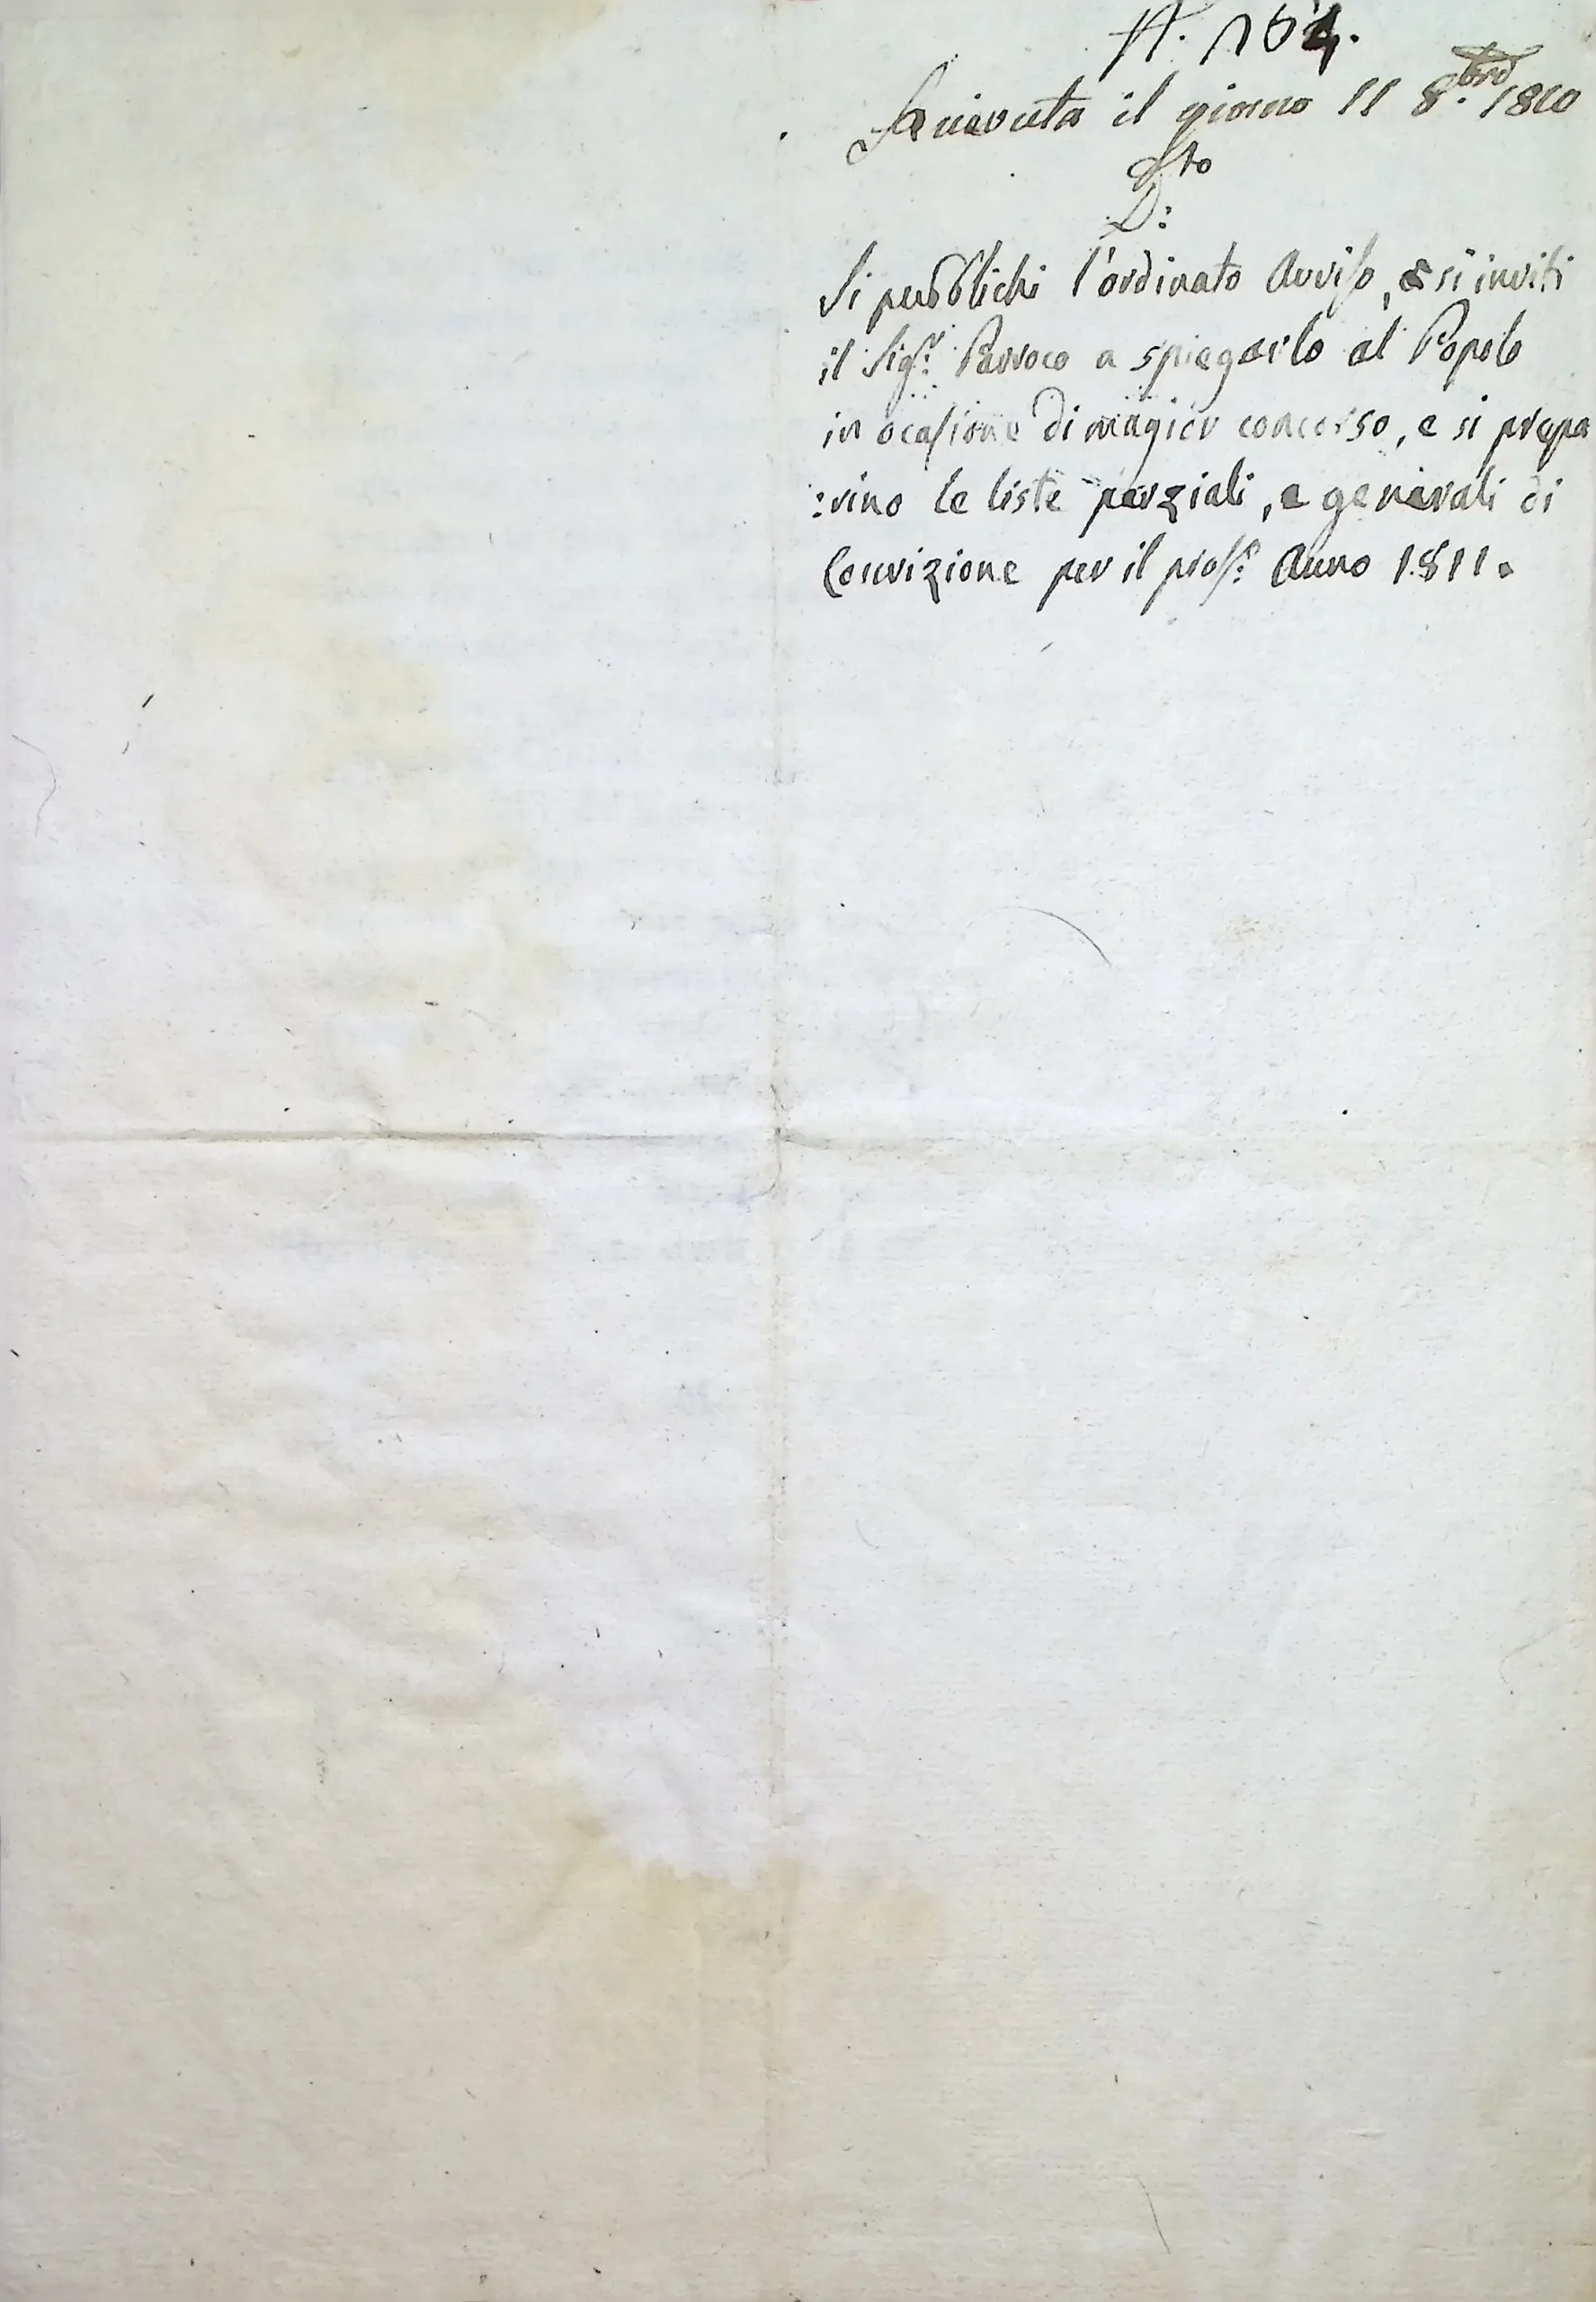 N. 164.
Ricevuta il giorno 11 8.bre 1810
D:to
D:
Si pubblichi l'ordinato Avviso, e si inviti
il Sigr: Parroco a spiegarlo al Popolo
in ocasione di magior concorso, e si prepa
:rino le liste parziali, e generali di
Coscrizione per il prosso: Anno 1811.